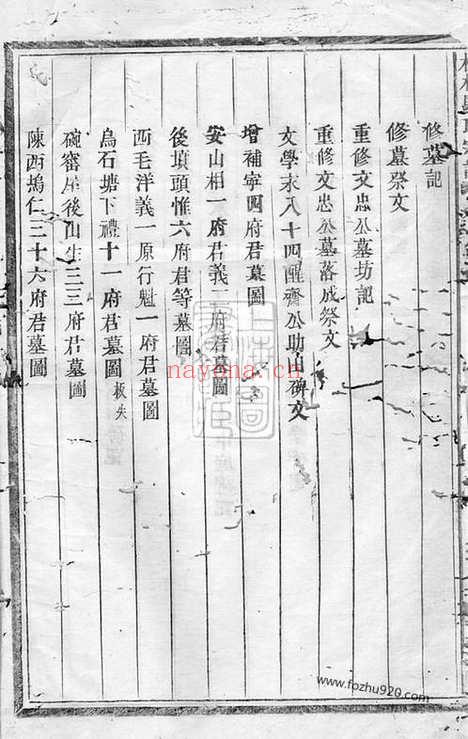 修墓記
修墓祭文
重修文忠公墓坊記
重修文忠公墓落成祭文
文學求八十四醒齋公助山碑文
增補寧四府君墓圖
安山相一府君義二府君墓圖
後墳頭惟六府君等墓圖
西毛洋義一原行魁一府君墓圖
烏石塘下禮十一府君墓圖 板失
碗窰屋後山生三三府君墓圖
陳西塢仁三十六府君墓圖
nayona.cn
www.fozhu920.com